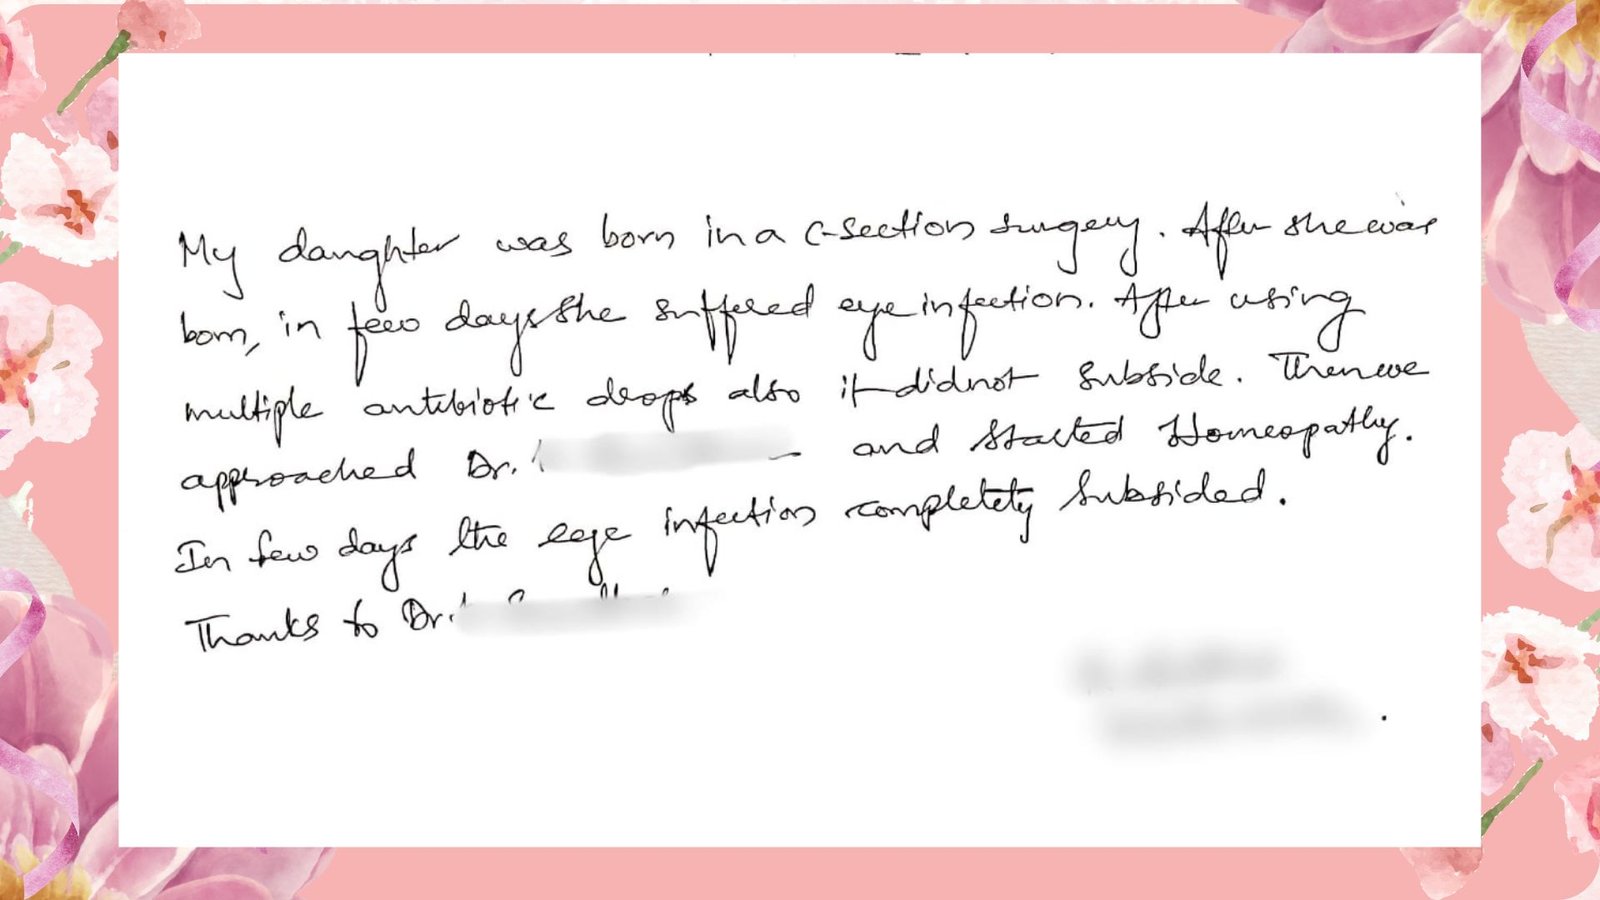 My daughter was born in a C-section surgery. After she was
born, in few days she suffered eye infection. After using
multiple antibiotic drops also it did not subside. Then we
approached Dr. and started Homeopathy.
In few days the eye infection completely subsided.
Thanks to Dr.